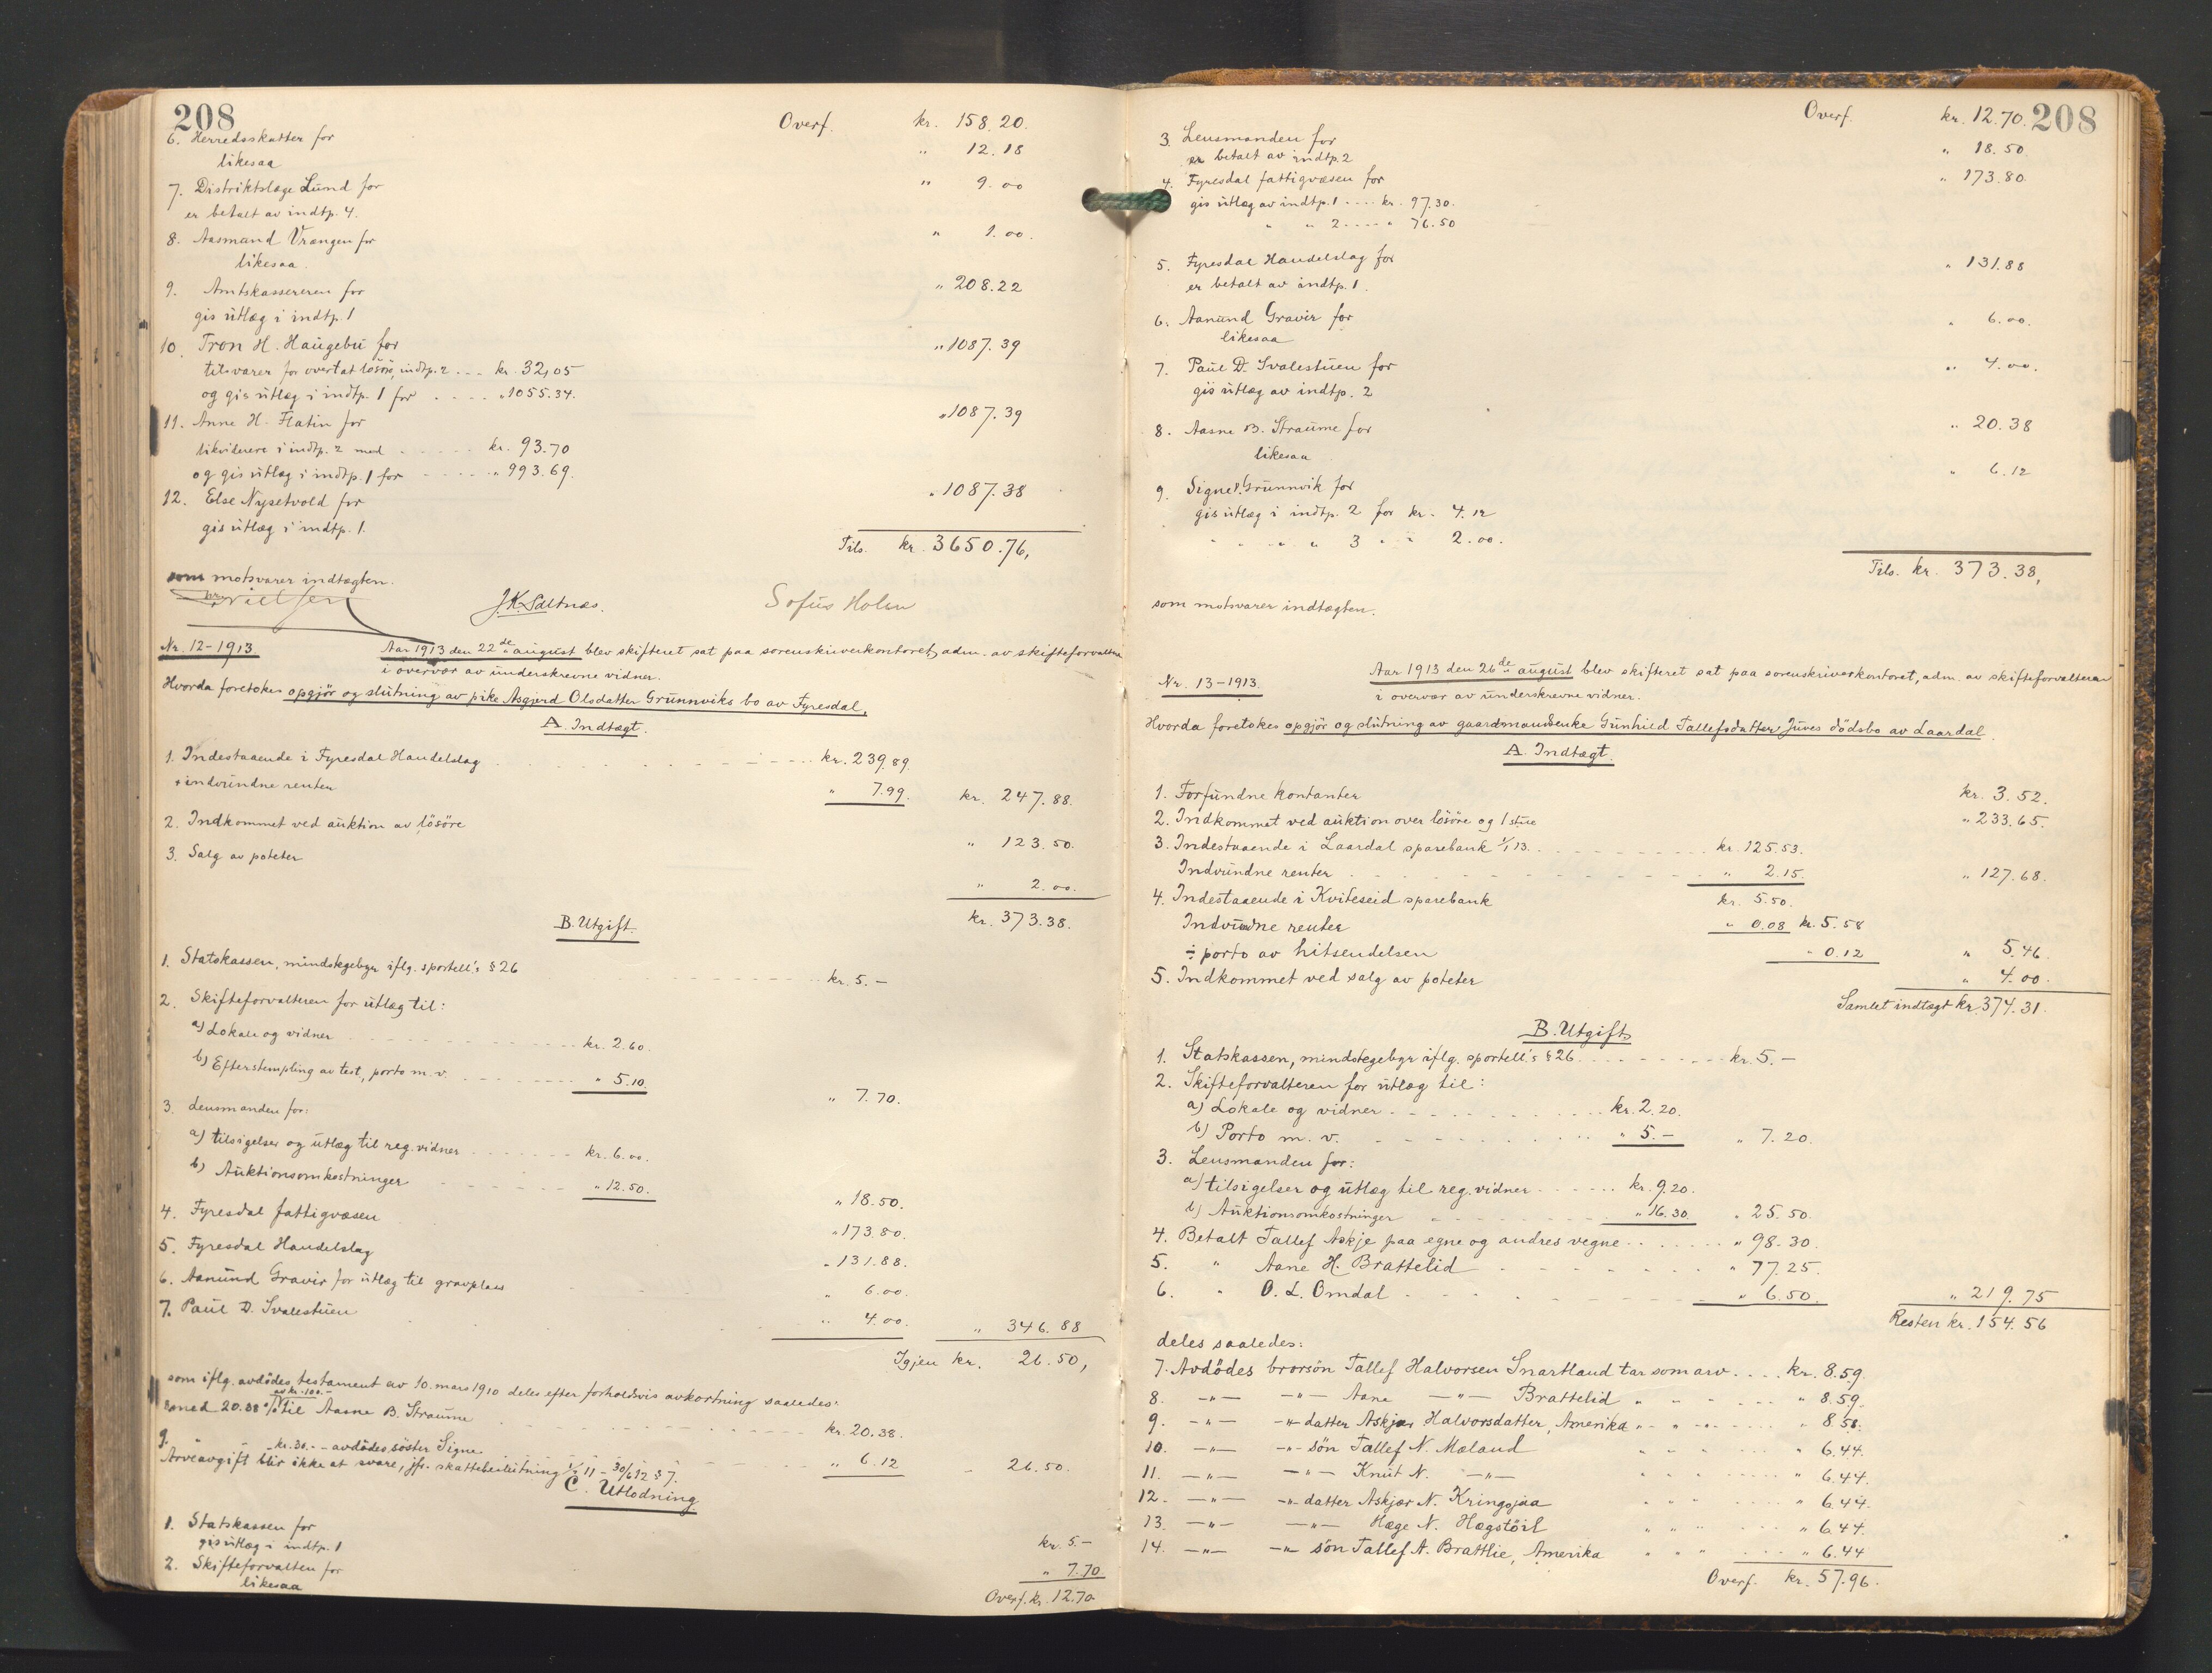 208
Overf. kr. 158.20.
6. Herredsskatter for " 12.18
likesaa
7. Distriktslæge Lund for " 9.00
er betalt av indtp. 4.
8. Aasmund Vrangen for " 1.00.
likesaa.
9. Amtskassereren for " 208.22
gis utlæg i indtp. 1
10. Tron H. Haugebu for " 1087.39
tilsvarer for overtat lösöre, indtp. 2 ... kr. 32,05
og gis utlæg i indtp. 1 for .... " 1055.34.
11. Anne H. Flatin for " 1087.39
likviderer i indtp. 2 med ..... kr. 93.70
og gis utlæg i indtp. 1 for ..... " 993.69.
12. Else Nysetvold for " 1087.38
gis utlæg i indtp. 1.
Tils. kr. 3650.76,
som motsvarer indtægten.
Nielsen J.K. Saltnes. Sofus Holm
Nr. 12-1913. Aar 1913 den 22de august blev skifteret sat paa sorenskriverkontoret, adm. av skifteforvalteren
i overvær av underskrevne vidner.
Hvorda foretokes opgjör og slutning av pike Asgjerd Olsdatter Grunnviks bo av Fyresdal.
A. Indtægt.
1. Indestaaende i Fyresdal Handelslag ........ kr. 239.89.
+ indvundne renter " 7.99. kr. 247.88.
2. Indkommet ved auktion av lösöre " 123.50.
3. Salg av poteter " 2.00.
kr. 373.38.
B. Utgift.
1. Statskassen, mindstegebyr iflg. sportell's § 26 ...... kr. 5.-
2. Skifteforvalteren for utlæg til:
a) Lokale og vidner ........ kr. 2.60.
b) Efterstempling av test, porto m.v. ....... " 5.10. " 7.70.
3. Lensmanden for:
a) tilsigelser og utlæg til reg. vidner ...... kr. 6.00.
b) Auktionsomkostninger ...... " 12.50. " 18.50.
4. Fyresdal fattigvæsen " 173.80.
5. Fyresdal Handelslag " 131.88.
6. Aanund Gravir for utlæg til gravplass " 6.00.
7. Paul D. Svalestuen " 4.00. " 346.88
Igjen kr. 26.50,
som iflg. avdödes testament av 10. mars 1910 deles efter forholdsvis avkortning saaledes:
8. med 20.38 % av kr. 100.- til Aasne B. Straume ....... kr. 20.38.
9. " kr. 30.- - avdödes söster Signe ....... " 6.12 - 26.50.
Arveavgift blir ikke at svare, jfr. skattebeslutning 1/7 11 - 30/6 12 § 7.
C. Utlodning.
1. Statskassen for kr. 5.-
gis utlæg i indtp. 1
2. Skifteforvalten for " 7.70
likesaa
Overf. kr. 12.70
208
Overf. kr. 12.70.
3. Lensmanden for " 18.50
er betalt av indtp. 2
4. Fyresdal fattigvæsen for " 173.80
gis utlæg av indtp. 1 .... kr. 97.30.
" " 2 .... " 76.50
5. Fyresdal Handelslag for " 131.88
er betalt av indtp. 1.
6. Aanund Gravir for " 6.00.
likesaa
7. Paul D. Svalestuen for " 4.00.
gis utlæg av indtp. 2
8. Aasne B. Straume for " 20.38
likesaa
9. Signe Grunnvik for " 6.12
gis utlæg i indtp. 2 for kr. 4.12
" " " " 3 " " 2.00.
Tils. kr. 373.38,
som motsvarer indtægten.
Nr. 13-1913. Aar 1913 den 26de august blev skifteret sat paa sorenskriverkontoret, adm. av skifteforvalteren
i overvær av underskrevne vidner.
Hvorda foretokes opgjör og slutning av gaardmandsenke Gunhild Tallefsdatter Juves dödsbo av Laardal.
A. Indtægt.
1. Forfundne kontanter kr. 3.52.
2. Indkommet ved auktion over lösöre og 1 stue " 233.65.
3. Indestaaende i Laardal sparebank 1/1 13. ........ kr. 125.53.
Indvundne renter ........ " 2.15. " 127.68.
4. Indestaaende i Kviteseid sparebank kr. 5.50.
Indvundne renter " 0.08 kr. 5.58
÷ porto av hitsendelsen " 0.12 " 5.46
5. Indkommet ved salg av poteter " 4.00.
Samlet indtægt kr. 374.31.
B. Utgift
1. Statskassen, mindstegebyr iflg. sportell's § 26. ....... kr. 5.-
2. Skifteforvalteren for utlæg til:
a) Lokale og vidner ........ kr. 2.20.
b) Porto m. v. ........ " 5.- " 7.20.
3. Lensmanden for:
a) tilsigelser og utlæg til reg. vidner ...... kr. 9.20.
b) Auktionsomkostninger ...... " 16.30. " 25.50.
4. Betalt Tallef Askje paa egne og andres vegne ...... " 98.30.
5. " Aane H. Brattelid ....... " 77.25.
6. " O. L. Omdal ....... " 6.50. " 219.75
Resten kr. 154.56
deles saaledes:
7. Avdödes brorsön Tallef Halvorsen Snartland tar som arv .... kr. 8.59.
8. -"- -"- Aane -"- Brattelid " " " .... " 8.59.
9. -"- -"- datter Askjær Halvorsdatter, Amerika " " " .... " 8.58.
10. -"- -"- sön Tallef N. Mæland " " " .... " 6.44.
11. -"- -"- Knut N. -"- " " " .... " 6.44.
12. -"- -"- datter Askjær N. Kringsjaa " " " .... " 6.44.
13. -"- -"- Hæge N. Hægstöil " " " .... " 6.44.
14. -"- -"- sön Tallef A. Brattlie, Amerika " " " .... " 6.44
Overf. kr. 57.96.